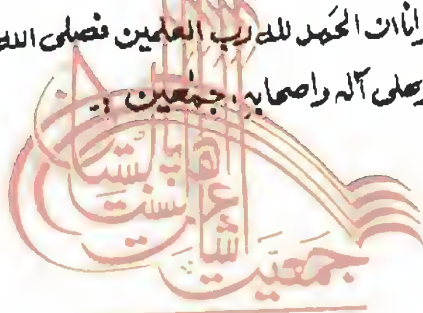 انا ان الحمد لله رب العلمين فصلى الله
وعلى آله واصحابه اجمعين
جمعیت اشاعت اہلسنت پاکستان